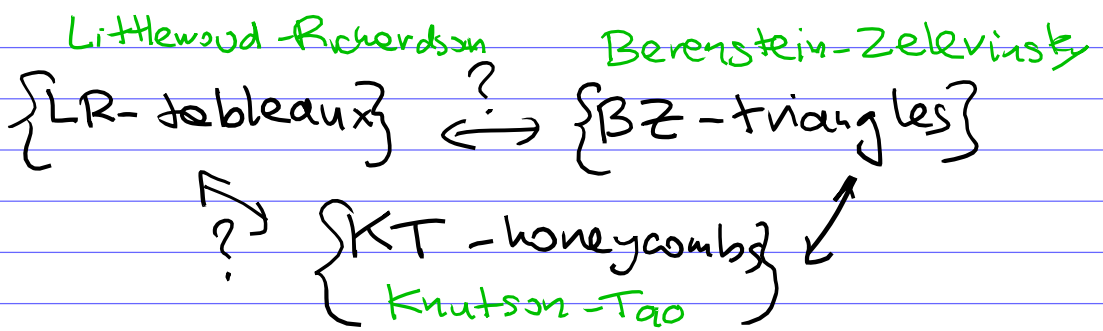 Littlewood-Richardson Berenstein-Zelevinsky
{LR-tableaux} ? {BZ-triangles}
? {KT-honeycombs}
Knutson-Tao